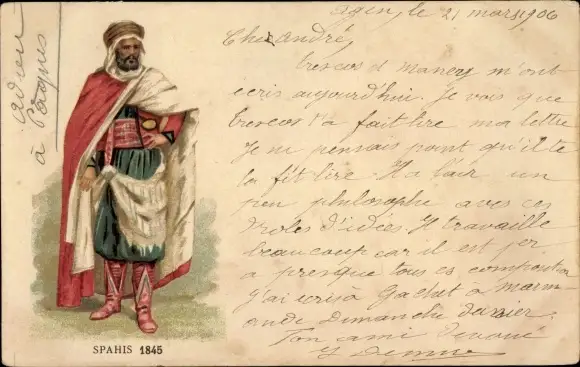 Agen, le 21 mars 1906
Cher André,
Crescos et Mancy m'ont
écris aujourdhui. Je vois que
Crescos t'a fait lire ma lettre
Je ne pensais point qu'il te
la fit lire. Il a l'air un
peu philosophe avec ces
droles d'idées. Il travaille
beaucoup car il est per
a presque tous ces composition
j'ai écris à Gachet a Marm
ande Dimanche dernier.
Ton ami devoué
adieu
à Pâques
SPAHIS 1845